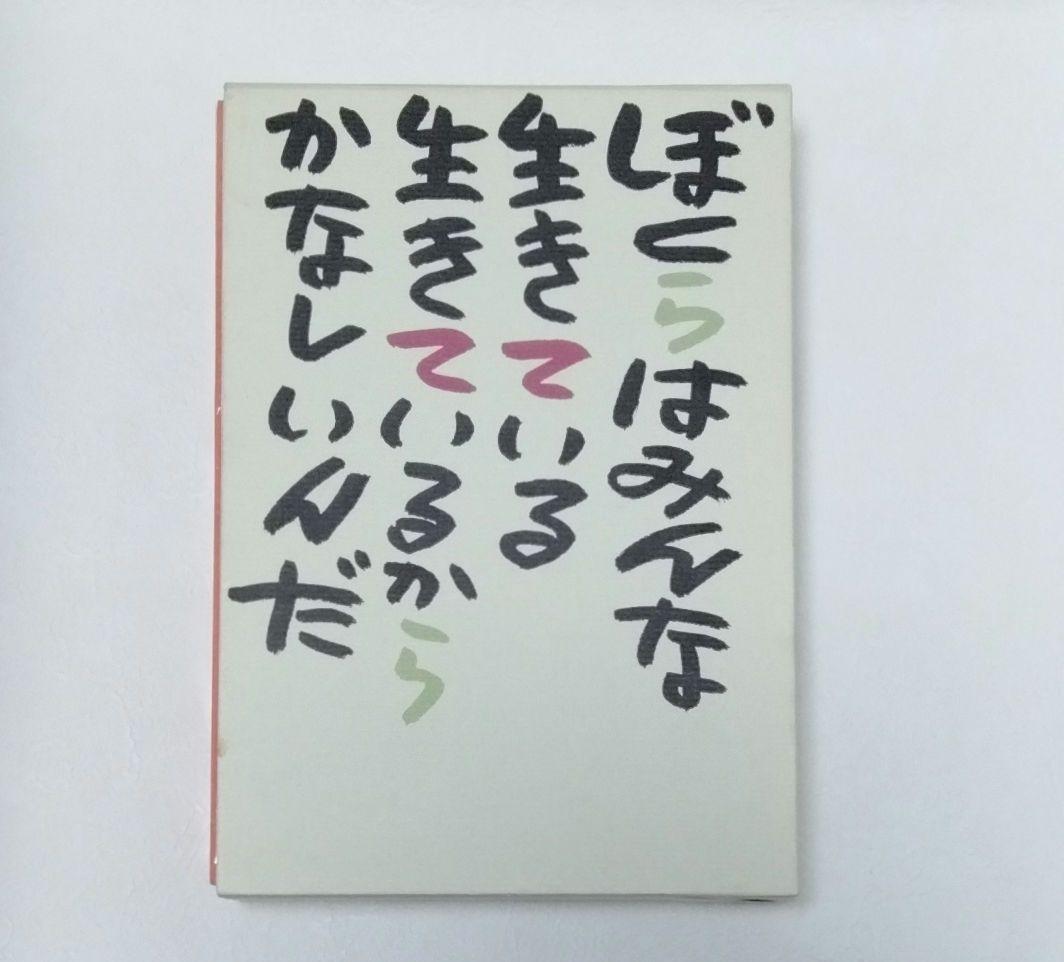 ぼくらはみんな
生きている
生きているから
かなしいんだ